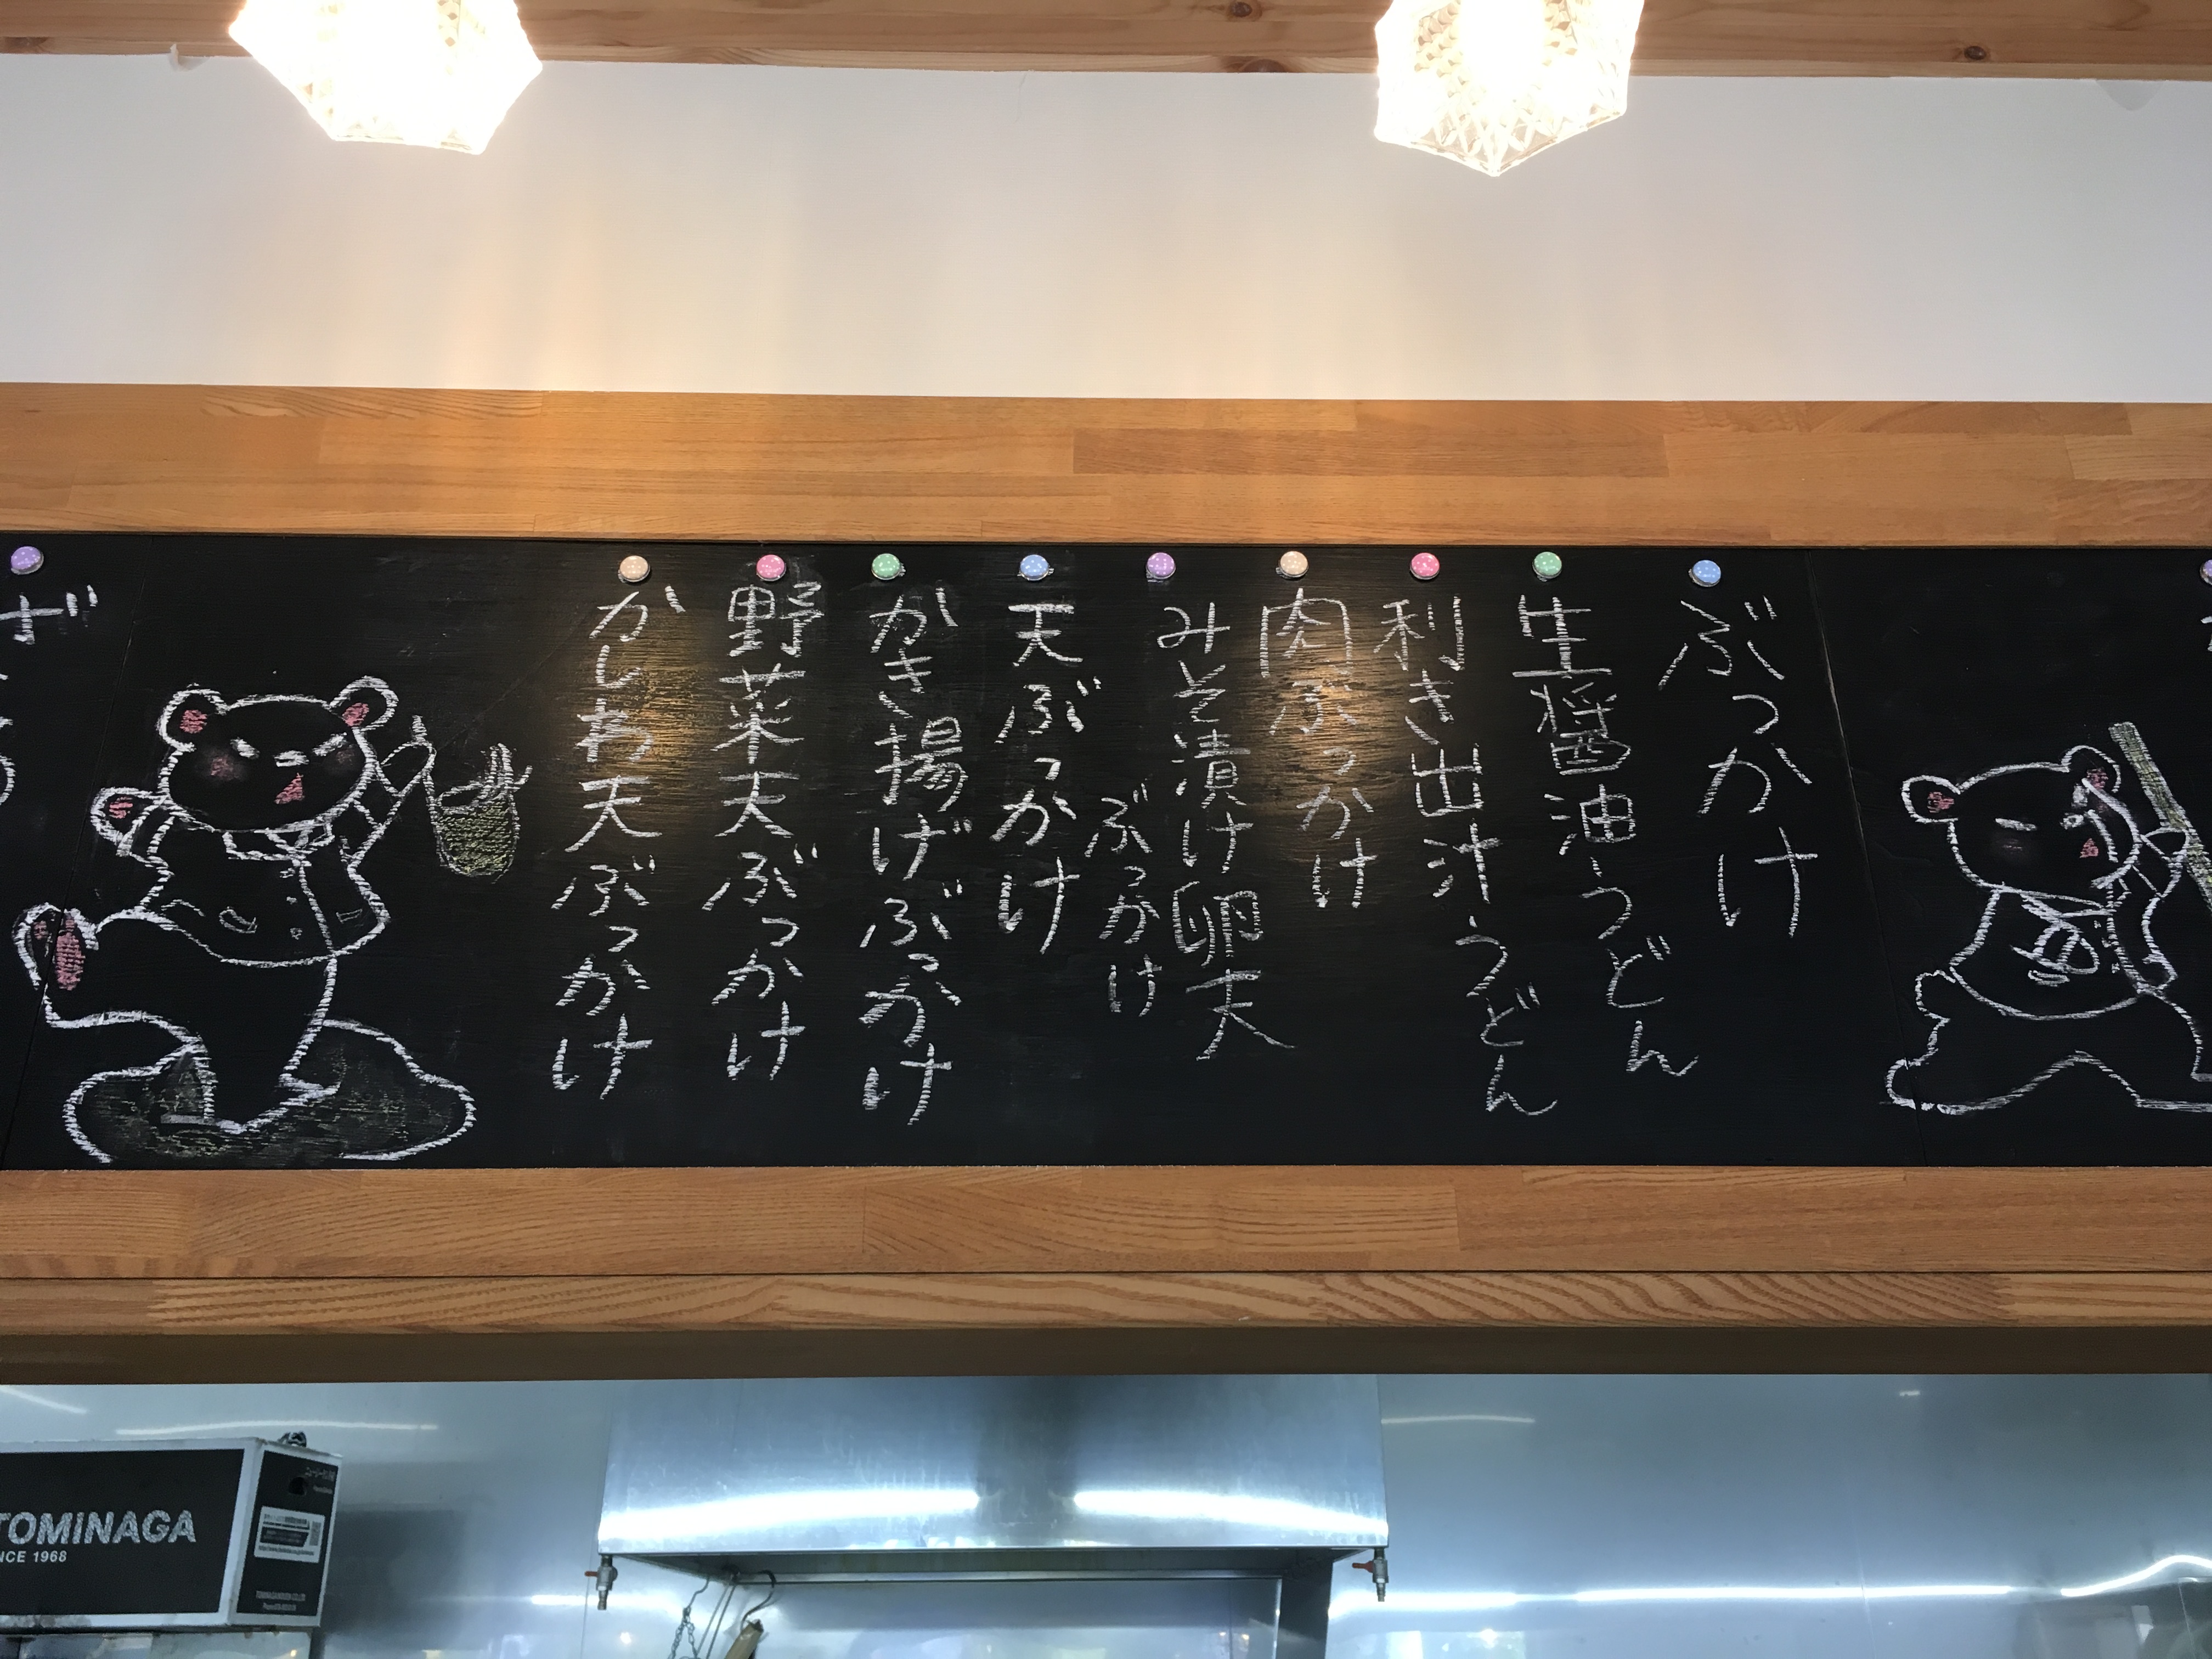 ぶっかけ
生醤油うどん
利き出汁うどん
肉ぶっかけ
みそ漬け卵天
ぶっかけ
天ぶっかけ
かき揚げぶっかけ
野菜天ぶっかけ
かしわ天ぶっかけ
TOMINAGA
NCE 1968